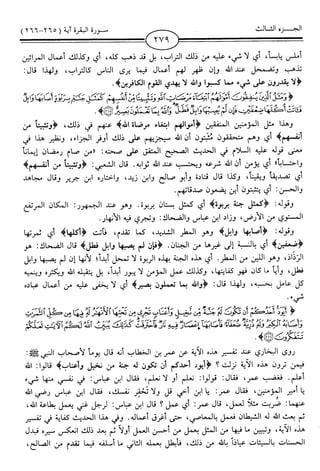 الجـــزء الثـالـث
٢٧٩
سـورة البقرة آية (٢٦٥-٢٦٦)
أملس يابساً، أي لا شيء عليه من ذلك التراب، بل قد ذهب كله، أي وكذلك أعمال المرائين
تذهب وتضمحل عند الله وإن ظهر لهم أعمال فيما يرى الناس كالتراب، ولهذا قال:
﴿لا يقدرون على شيء مما كسبوا والله لا يهدي القوم الكافرين﴾.
﴿وَمَثَلُ الَّذِينَ يُنفِقُونَ أَمْوَالَهُمُ ابْتِغَاءَ مَرْضَاتِ اللَّهِ وَتَثْبِيتًا مِّنْ أَنفُسِهِمْ كَمَثَلِ جَنَّةٍ بِرَبْوَةٍ أَصَابَهَا وَابِلٌ
فَآتَتْ أُكُلَهَا ضِعْفَيْنِ فَإِن لَّمْ يُصِبْهَا وَابِلٌ فَطَلٌّ وَاللَّهُ بِمَا تَعْمَلُونَ بَصِيرٌ﴾
وهذا مثل المؤمنين المنفقين ﴿أموالهم ابتغاء مرضاة الله﴾ عنهم في ذلك، ﴿وتثبيتاً من
أنفسهم﴾ أي وهم متحققون مثبتون أن الله سيجزيهم على ذلك أوفر الجزاء، ونظير هذا في
معنى قوله عليه السلام في الحديث الصحيح المتفق على صحته: «من صام رمضان إيماناً
واحتساباً» أي يؤمن أن الله شرعه ويحتسب عند الله ثوابه. قال الشعبي: ﴿وتثبيتاً من أنفسهم﴾
أي تصديقاً ويقيناً، وكذا قال قتادة وأبو صالح وابن زيد، واختاره ابن جرير وقال مجاهد
والحسن: أي يتثبتون أين يضعون صدقاتهم.
وقوله: ﴿كمثل جنة بربوة﴾ أي كمثل بستان بربوة. وهو عند الجمهور: المكان المرتفع
المستوي من الأرض، وزاد ابن عباس والضحاك: وتجري فيه الأنهار.
وقوله: ﴿أصابها وابل﴾ وهو المطر الشديد، كما تقدم، فآتت ﴿أكلها﴾ أي ثمرتها
﴿ضعفين﴾ أي بالنسبة إلى غيرها من الجنان. ﴿فإن لم يصبها وابل فطل﴾ قال الضحاك: هو
الرّذاذ، وهو اللين من المطر. أي هذه الجنة بهذه الربوة لا تمحل أبداً، لأنها إن لم يصبها وابل
فطل، وأياً ما كان فهو كفايتها، وكذلك عمل المؤمن لا يبور أبداً، بل يتقبله الله ويكثره وينميه
كل عامل بحسبه، ولهذا قال: ﴿والله بما تعملون بصير﴾ أي لا يخفى عليه من أعمال عباده
شيء.
﴿أَيَوَدُّ أَحَدُكُمْ أَن تَكُونَ لَهُ جَنَّةٌ مِّن نَّخِيلٍ وَأَعْنَابٍ تَجْرِي مِن تَحْتِهَا الْأَنْهَارُ لَهُ فِيهَا مِن كُلِّ الثَّمَرَاتِ
وَأَصَابَهُ الْكِبَرُ وَلَهُ ذُرِّيَّةٌ ضُعَفَاءُ فَأَصَابَهَا إِعْصَارٌ فِيهِ نَارٌ فَاحْتَرَقَتْ كَذَٰلِكَ يُبَيِّنُ اللَّهُ لَكُمُ الْآيَاتِ لَعَلَّكُمْ
تَتَفَكَّرُونَ﴾
روى البخاري عند تفسير هذه الآية عن عمر بن الخطاب أنه قال يوماً لأصحاب النبي ﷺ:
فيمن ترون هذه الآية نزلت؟ ﴿أيود أحدكم أن تكون له جنة من نخيل وأعناب﴾ قالوا: الله
أعلم. فغضب عمر، فقال: قولوا: نعلم أو لا نعلم، فقال ابن عباس: في نفسي منها شيء
يا أمير المؤمنين، فقال عمر: يا ابن أخي قل ولا تحقر نفسك، فقال ابن عباس رضي الله
عنهما: ضربت مثلاً لعمل، قال عمر: أي عمل؟ قال ابن عباس: لرجل غني يعمل بطاعة الله،
ثم بعث الله له الشيطان فعمل بالمعاصي، حتى أغرق أعماله. وفي هذا الحديث كفاية في تفسير
هذه الآية، وتبيين ما فيها من المثل بعمل من أحسن العمل أولاً ثم بعد ذلك انعكس سيره فبدل
الحسنات بالسيئات عياذاً بالله من ذلك، فأبطل بعمله الثاني ما أسلفه فيما تقدم من الصالح،